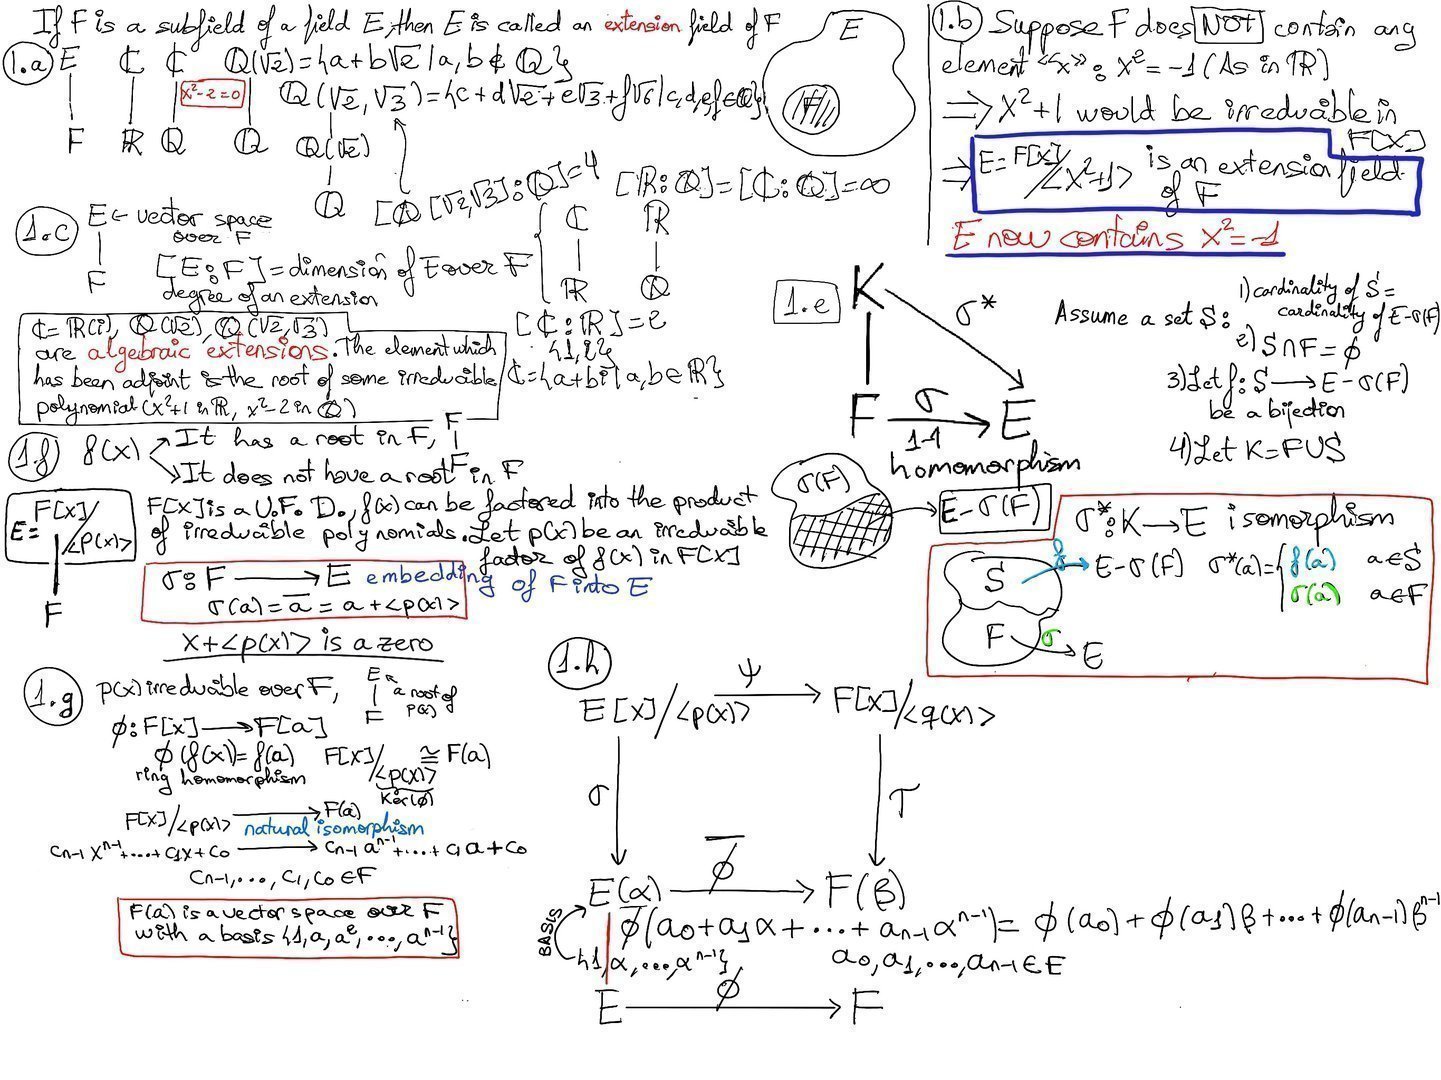 If F is a subfield of a field E, then E is called an extension field of F
1.a
E ℂ ℂ Q(√2)={a+b√2 | a,b ∈ Q}
x²-2=0
Q(√2,√3)={c+d√2+e√3+f√6 | c,d,e,f∈Q}
F ℝ Q Q Q(√2)
Q
[Q[√2,√3]:Q]=4
[ℝ:Q]=[ℂ:Q]=∞
E
F
1.b
Suppose F does NOT contain any
element "x": x²=-1 (As in ℝ)
⇒ x²+1 would be irreducible in
F[x]
⇒ E=F[x]/<x²+1> is an extension field
of F
E now contains x²=-1
1.c
E ← vector space
over F
F
[E:F]=dimension of E over F
degree of an extension
ℂ ℝ
ℝ Q
[ℂ:ℝ]=2
{1,i}
ℂ={a+bi | a,b∈ℝ}
ℂ=ℝ(i), Q(√2), Q(√2,√3)
are algebraic extensions. The element which
has been adjoint is the root of some irreducible
polynomial (x²+1 in ℝ, x²-2 in Q)
1.e
K
σ*
F σ E
1-1
homomorphism
Assume a set S:
1) cardinality of S =
cardinality of E-σ(F)
2) S∩F=∅
3) Let f: S → E-σ(F)
be a bijection
4) Let K=F∪S
σ(F)
E-σ(F)
σ*: K → E isomorphism
S f E-σ(F)
σ*(a)={ f(a) a∈S
σ(a) a∈F
F σ E
1.f
f(x)
It has a root in F,
F
F
It does not have a root in F
E=F[x]/<p(x)>
F
F[x] is a U.F.D., f(x) can be factored into the product
of irreducible polynomials. Let p(x) be an irreducible
factor of f(x) in F[x]
σ: F → E embedding of F into E
σ(a)=a̅=a+<p(x)>
x+<p(x)> is a zero
1.g
p(x) irreducible over F,
E
F
a root of
p(x)
ϕ: F[x] → F[a]
ϕ(f(x))=f(a)
ring homomorphism
F[x]/<p(x)> ≅ F(a)
Ker(ϕ)
F[x]/<p(x)> → F(a)
natural isomorphism
cn-1 xⁿ⁻¹+...+c1x+c0 → cn-1 aⁿ⁻¹+...+c1a+c0
cn-1,...,c1,c0∈F
F(a) is a vector space over F
with a basis {1,a,a²,...,aⁿ⁻¹}
1.h
E[x]/<p(x)> ψ F[x]/<q(x)>
σ τ
E(α) ϕ̅ F(β)
BASIS
ϕ̅(a0+a1α+...+an-1αⁿ⁻¹)=ϕ(a0)+ϕ(a1)β+...+ϕ(an-1)βⁿ⁻¹
{1,α,...,αⁿ⁻¹}
a0,a1,...,an-1∈E
E ϕ F